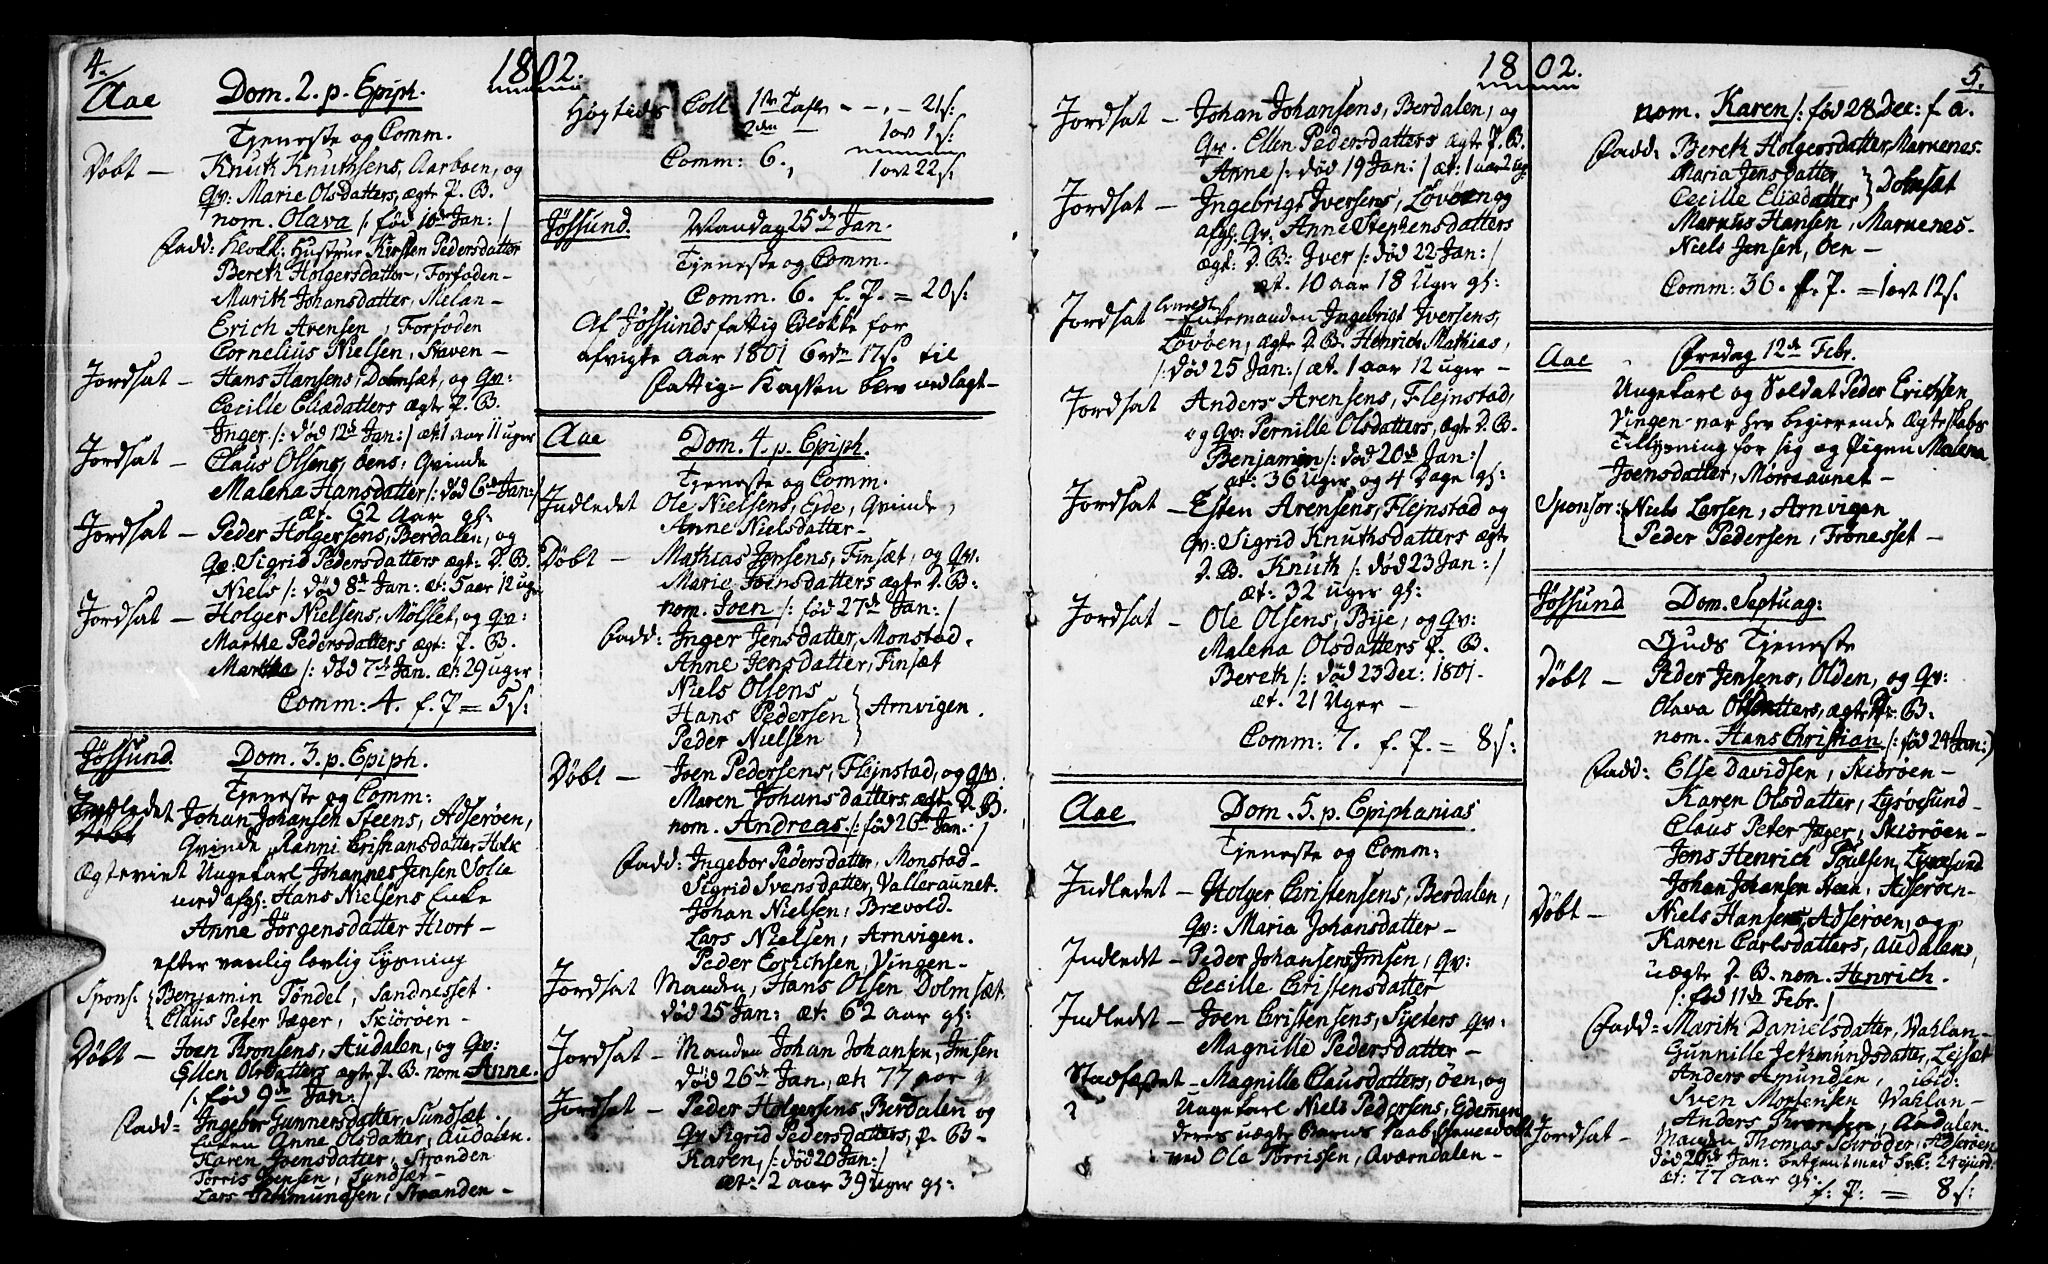 4.
1802.
Aae Dom. 2. p. Epiph.
Tjeneste og Comm.
Döbt — Knuth Knuthsens, Aarboen, og
Qv: Marie Olsdatters, ægte P. B.
nom. Olava /: fød 10de Jan: /
Fadd: Klokk: Hustrue Kirsten Pedersdatter
Bereth Holgersdatter, Forfoden –
Marith Johansdatter, Melan –
Erich Arensen, Forfoden
Cornelius Nielsen, Staven –
Jordsat – Hans Hansens, Dolmsæt, og Qv:
Cecille Eliædatters ægte P. B.
Inger /: død 12de Jan: / æt: 1 aar 11 uger
Jordsat – Claus Olsens, öens, Qvinde
Malena Hansdatter /: død 6de Jan: /
æt. 62 Aar gl:
Jordsat – Peder Holgersens, Berdalen, og
Qv: Sigrid Pedersdatters ægt: D. B.
Niels /: død 8de Jan: æt: 5 aar 12 uger
Jordsat – Holger Nielsens, Mölslet, og Qv:
Marthe Pedersdatters ægt: P. B.
Martha /: død 7de Jan. æt: 29 uger
Comm: 4. f. P = 5 s:
Jössund. Dom. 3. p. Epiph.
Tjeneste og Comm:
Indledet Johan Johansen Steens, Adseröen,
Qvinde, Ranni Cristiansdatter Holk
Ægteviet Ungekarl Johannes Jensen Solie
med afgl: Hans Nielsens Enke
Anne Jörgensdatter Hiort –
efter vanlig lovlig Lysning
Spons: Benjamin Töndel, Sandnesset.
Claus Peter Jæger, Skiöröen –
Döbt – Joen Thronsens, Audalen, og Qv:
Ellen Olsdatters ægte P. B. nom Anne.
/: fød 9de Jan: /
Fadd: Ingebor Gunnersdatter, Sundsæt.
Anne Olsdatter, Audalen.
Karen Joensdatter, Stranden
Torris Joensen, Sundsæt –
Lars Jetmundsen, Stranden –
Høgtids Coll 1ste Tavle – – , – 21 s:
2den — 1 ort 1 s:
Comm: 6. , 1 ort 22 s:
Jössund. Mandag 25de Jan.
Tjeneste og Comm.
Comm. 6. f. P. = 20 s:
Af Jössunds fattig Blokke for
afvigte Aar 1801 6 rdr 17 s. til
Fattig-Kassen blev nedlagt –
Aae Dom. 4. p. Epiph.
Tjeneste og Comm.
Indledet Ole Nielsens, Ede, Qvinde,
Anne Nielsdatter –
Döbt – Mathias Jensens, Finsæt, og Qv:
Marie Joensdatters ægte D. B:
nom. Joen /: fød 27de Jan: /
Fadd: Inger Jensdatter, Monstad.
Anne Jensdatter, Finsæt
Niels Olsens
Hans Pedersen } Arnvigen.
Peder Nielsen
Döbt – Joen Pedersens, Flejnstad, og Qv.
Maren Johansdatters ægte D. B.
nom. Andreas /: fød 26de Jan: /
Fadd: Ingebor Pedersdatter, Monstad –
Sigrid Svensdatter, Valleraunet.
Johan Nielsen, Brevold.
Lars Nielsen, Arnvigen.
Peder Erichsen, Vingen –
Jordsat Manden, Hans Olsen Dolmsæt.
död 25 Jan: æt: 62 aar gl:
Jordsat – Manden Johan Johansen, Imsen
död 26de Jan., æt: 77 aar
Jordsat – Peder Holgersens, Berdalen og
Qv Sigrid Pedersdatters, P. B –
Karen, /: død 20 Jan: /
æt: 2 aar 39 uger gl:
1802.
5.
Jordsat – Johan Johansens, Berdalen, og
Qv. Ellen Pedersdatters ægte P. B.
Anne /: død 19 Jan: / æt: 1 aar 2 ug.
Jordsat – Ingebrigt Iversens, Lövöen og
afgl. Qv: Anne Stephensdatters
ægt: D. B: Iver /: død 22 Jan: /
æt. 10 aar 18 Uger gl:
Jordsat – Enkemanden Ingebrigt Iversens,
Lövöen, ægte D. B. Henrich Mathias,
/: død 25 Jan: / æt. 1 aar 12 uger –
Jordsat Anders Arensens, Flejnstad,
og Qv: Pernille Olsdatters, ægte D. B.
Benjamin /: død 20de Jan: /
æt: 36 Uger og 4 Dage gl:
Jordsat – Esten Arensens, Flejnstad og
Qv: Sigrid Knuthsdatters ægte
D. B. Knuth /: død 23 Jan: /
æt: 32 uger gl:
Jordsat – Ole Olsens, Bije, og Qv:
Malena Olsdatters P. B.
Bereth /: død 23 Dec: 1801.
æt. 21 Uger –
Comm: 7. f. P. = 8 s:
Aae Dom. 5. p. Epiphanias
Tjeneste og Comm:
Indledet – Holger Cristensens, Berdalen,
Qv: Maria Johansdatter –
Indledt – Peder Johansens, Imsen, Qv:
Cecille Cristensdatter
Indledet – Joen Cristensens, Sycters Qv:
Magnille Pedersdatter –
Stadfæstet – Magnille Clausdatters, öen, og
Ungekarl Niels Pedersens, Edemyn
deres uægte Barns Daab,
ved Ola Torrissen, Averndalen –
nom. Karen /: fød 28 Dec: f. a.
Fadd: Bereth Holgersdatter, Marnenes.
Maria Jensdatter
Cecille Eliædatter } Dolmsæt
Markus Hansen, Marnenes –
Niels Jensen, öen –
Comm: 36. f. P. = 1 ort 12 s.
Aae Fredag 12de Febr.
Ungekarl og Soldat Peder Erichsen
Vingen var her begierende Ægteskabs
Tillysning for sig og Pigen Malena
Joensdatter, Mörreaunet –
Sponsor: Niels Larsen, Arnvigen
Peder Pedersen, Frönesset –
Jössund Dom. Septuag:
Guds Tjeneste
Döbt – Peder Jensens, Olden, og Qv:
Olava Olsdatters, ægte P. B:
nom. Hans Christian /: fød 24 Jan: /
Fadd: Else Davidsen, Skiöröen –
Karen Olsdatter, Lysöesund –
Claus Peter Jæger, Skiöröen –
Jens Henrich Poulsen, Lysösund
Johan Johansen, Adseröen –
Döbt – Niels Hansens, Adseröen, og
Karen Carlsdatters, Audalen,
uægte D. B. nom. Henrich.
/: fød 11de Febr. /
Fadd: Marith Danielsdatter, Wahlan –
Gunnille Jetmundsdatter, Lejsæt
Anders Amundsen, ibid:
Sven Mortensen Wahlan –
Anders Thronsen, Audalen.
Jordsat – Manden Thomas Schröder, Adseröen
død 20de Jan:
æt: 77 aar gl:
f: P. = 8 s: